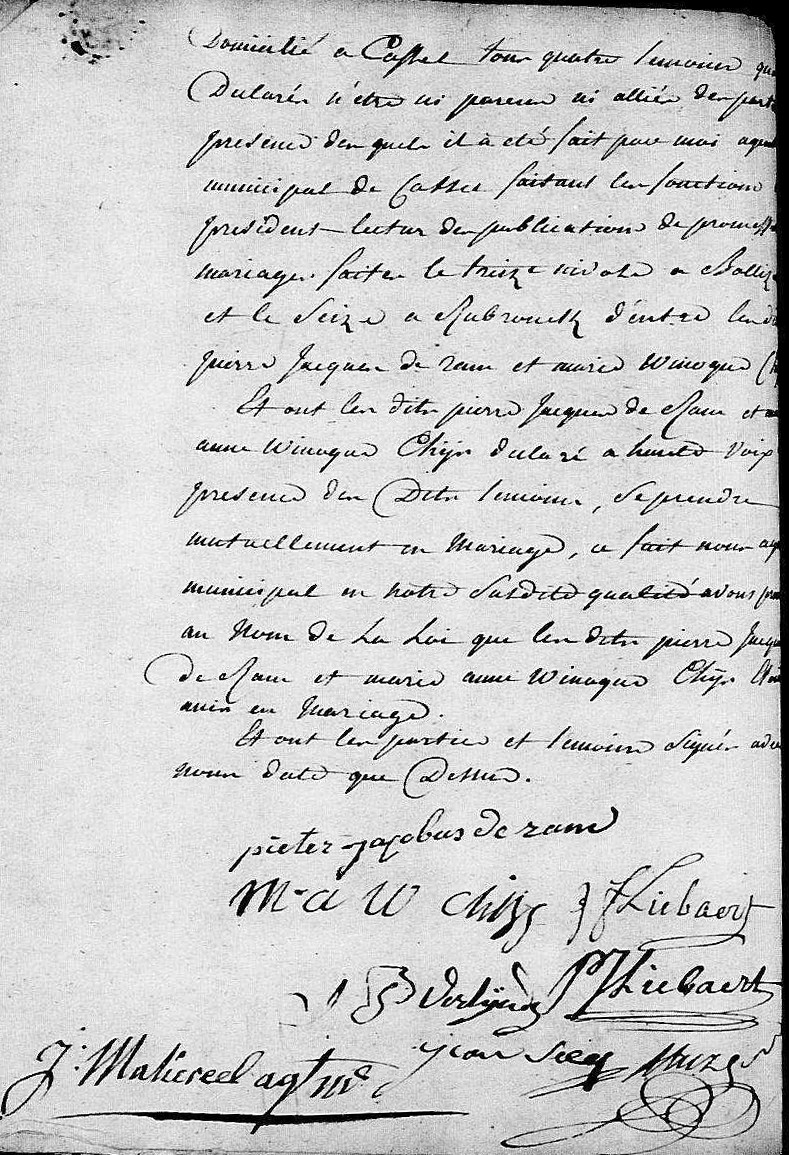 Domicilié a Cassel tous quatre temoins qui
Declarés n'être ni parens ni alliés des part
presence desquels il a eté fait par moi agent
municipal de Cassel faisant les fonctions
président lecture des publications de promesse
mariages faites le treize nivose a Bollize
et le Seize a Rubrouck d'entre les d
pierre Jacques de ram et marie Winoque
Et ont les dits pierre Jacques de Ram et
anne Winoque Chijs declaré a haute Voix
presence des Dits temoins, Se prendre
mutuellement en Mariage, ce fait nous ag
municipal en notre Susdite qualité avons pro
au Nom de La Loi que les dits pierre Jacqu
de Ram et marie anne Winoque Chijs
unis en Mariage.
Et ont les partie et temoins Signés avec
nous date que Dessus.
pieter jacobus de ram
M. a W Chijs J F Liebaert
P J Liebaert
J. agt m
jean